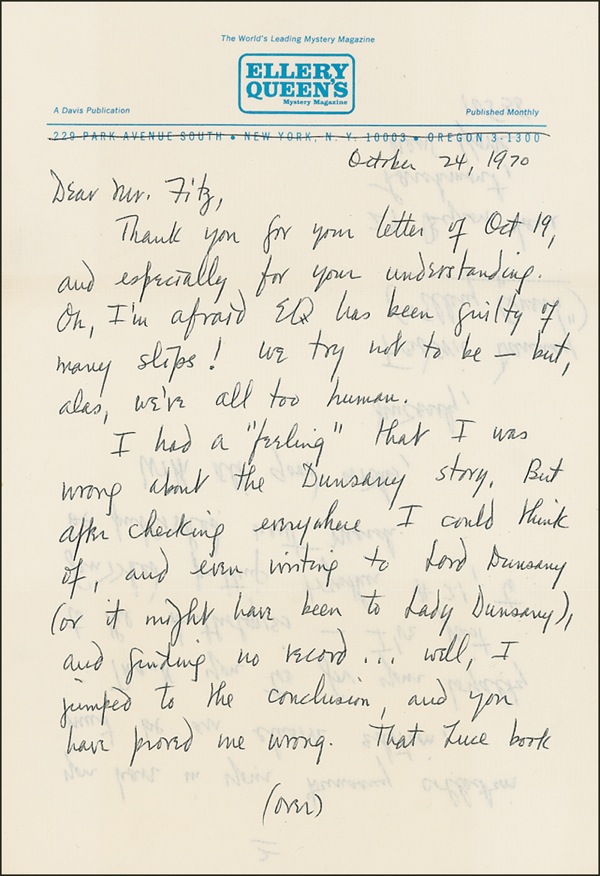 The World's Leading Mystery Magazine
ELLERY
QUEEN'S
Mystery Magazine
A Davis Publication
Published Monthly
229 PARK AVENUE SOUTH • NEW YORK, N. Y. 10003 • OREGON 3-1300
October 24, 1970
Dear Mr. Fitz,
Thank you for your letter of Oct 19,
and especially for your understanding.
Oh, I'm afraid EQ has been guilty of
many slips! We try not to be — but,
alas, we're all too human.
I had a "feeling" that I was
wrong about the Dunsany story. But
after checking everywhere I could think
of, and even writing to Lord Dunsany
(or it might have been to Lady Dunsany),
and finding no record... well, I
jumped to the conclusion, and you
have proved me wrong. That Luce book
(over)